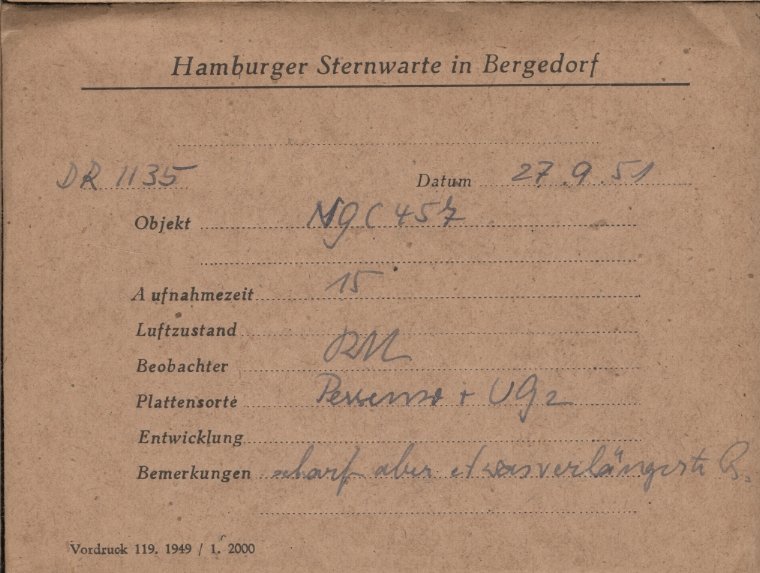 Hamburger Sternwarte in Bergedorf
DR 1135 Datum 27.9.51
Objekt NGC 457
Aufnahmezeit 15
Luftzustand
Beobachter
Plattensorte + UG2
Entwicklung
Bemerkungen scharf aber etwas verlängerte B.
Vordruck 119. 1949 / 1. 2000